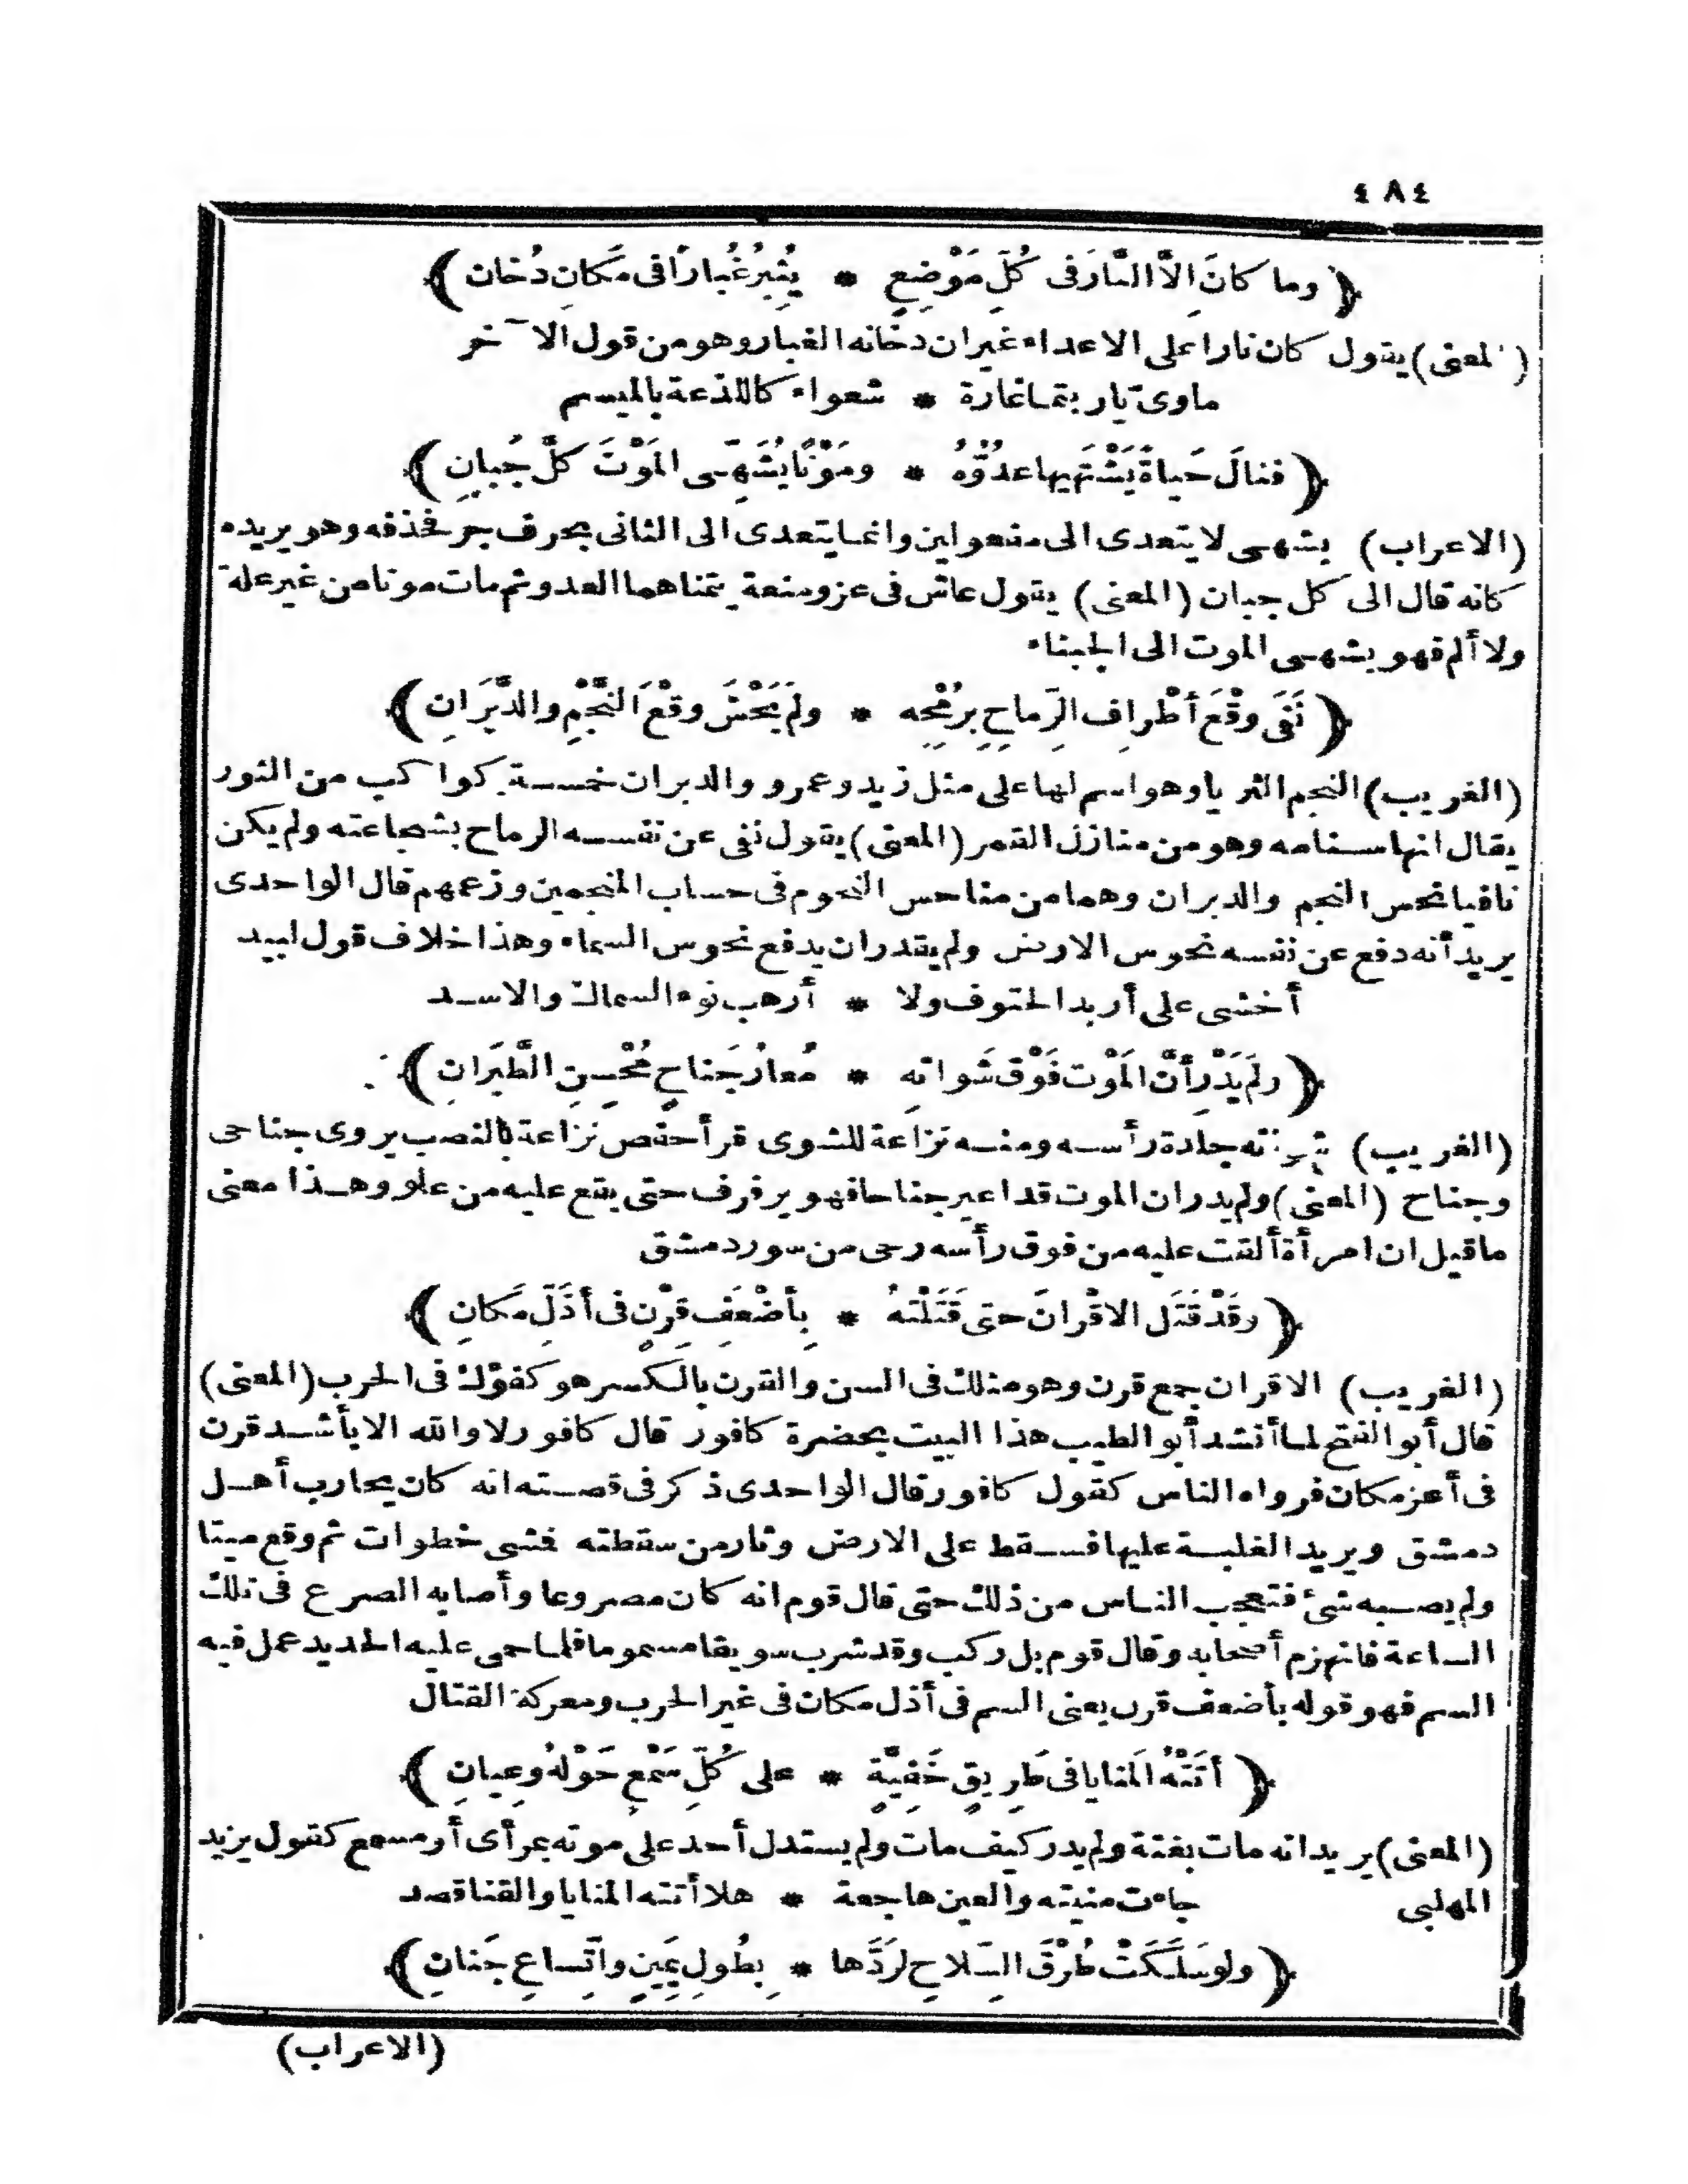 ٤٨٤
﴿ وما كانَ اِلَّا النَّارَ فى كُلِّ مَوْضِعٍ * يُثِيرُ غُبارًا فى مَكانِ دُخانِ ﴾
(المعنى) يقول كان نارا على الاعداء غيران دخانه الغبار وهو من قول الآخر
ماوىّ يار بتما غارة * شعواء كاللذعة بالميسم
﴿ فنالَ حَياةً يَشْتَهِيها عدُوُّهُ * ومَوْتًا يُشَهِّى المَوْتَ كلَّ جَبانِ ﴾
(الاعراب) يشهى لا يتعدى الى مفعولين وانما يتعدى الى الثانى بحرف جر فحذفه وهو يريده
كانه قال الى كل جبان (المعنى) يقول عاش فى عز ومنعة يتمناهما العدو ثم مات موتا من غير علة
ولا ألم فهو يشهى الموت الى الجبناء
﴿ نَفَى وقْعَ أطْرافِ الرِّماحِ بِرُمْحِه * ولَمْ يَخْشَ وقْعَ النَّجْمِ والدَّبَرانِ ﴾
(الغريب) النجم الثريا وهو اسم لها على مثل زيد وعمرو والدبران خمسة كواكب من الثور
يقال انها سنامه وهو من منازل القمر (المعنى) يقول نفى عن نفسه الرماح بشجاعته ولم يكن
نافيا نحس النجم والدبران وهما من مناحس النجوم فى حساب المنجمين وزعمهم قال الواحدى
يريد أنه دفع عن نفسه نحوس الارض ولم يقدر ان يدفع نحوس السماء وهذا خلاف قول لبيد
أخشى على أربد الحتوف ولا * أرهب نوء السماك والاسد
﴿ ولَمْ يَدْرِ أنَّ المَوْت فَوْقَ شَواتِه * مُعارُ جَناحٍ مُحْسِنِ الطَّيَرانِ ﴾
(الغريب) شواته جلدة رأسه ومنه نزاعة للشوى قرأ حفص نزاعة بالنصب يروى جناحى
وجناح (المعنى) ولم يدر ان الموت قد اعير جناحا فهو يرفرف حتى يقع عليه من علو وهذا معنى
ما قيل ان امرأة ألقت عليه من فوق رأسه رحى من سور دمشق
﴿ وقَدْ قَتَل الاقْرانَ حتى قَتَلْتهُ * بِأضْعَفِ قِرْنٍ فى أذَلِّ مَكانِ ﴾
(الغريب) الاقران جمع قرن وهو مثلك فى السن والقرن بالكسر هو كفؤك فى الحرب (المعنى)
قال أبو الفتح لما أنشد أبو الطيب هذا البيت بحضرة كافور قال كافور لا والله الا بأشد قرن
فى أعز مكان فرواه الناس كقول كافور قال الواحدى ذكر فى قصته انه كان يحارب أهل
دمشق ويريد الغلبة عليها فسقط على الارض وثار من سقطته فمشى خطوات ثم وقع ميتا
ولم يصبه شئ فتعجب الناس من ذلك حتى قال قوم انه كان مصروعا وأصابه الصرع فى تلك
الساعة فانهزم أصحابه وقال قوم بل ركب وقد شرب سويقا مسموما فلما حمى عليه الحديد عمل فيه
السم فهو قوله بأضعف قرن يعنى السم فى أذل مكان فى غير الحرب ومعركة القتال
﴿ أتَتْهُ المَنايا فى طَرِيقٍ خَفِيَّةٍ * على كُلِّ سَمْعٍ حَوْلهُ وعِيانِ ﴾
(المعنى) يريد انه مات بغتة ولم يدر كيف مات ولم يستدل أحد على موته بمرأى أو مسمع كقول يزيد
المهلبى جاءت منيته والعين هاجعة * هلا أتته المنايا والقنا قصد
﴿ ولو سَلَكَتْ طُرْقَ السِّلاحِ لرَدَّها * بِطُولِ يَمِينٍ واتِّساعِ جَنانِ ﴾
(الاعراب)